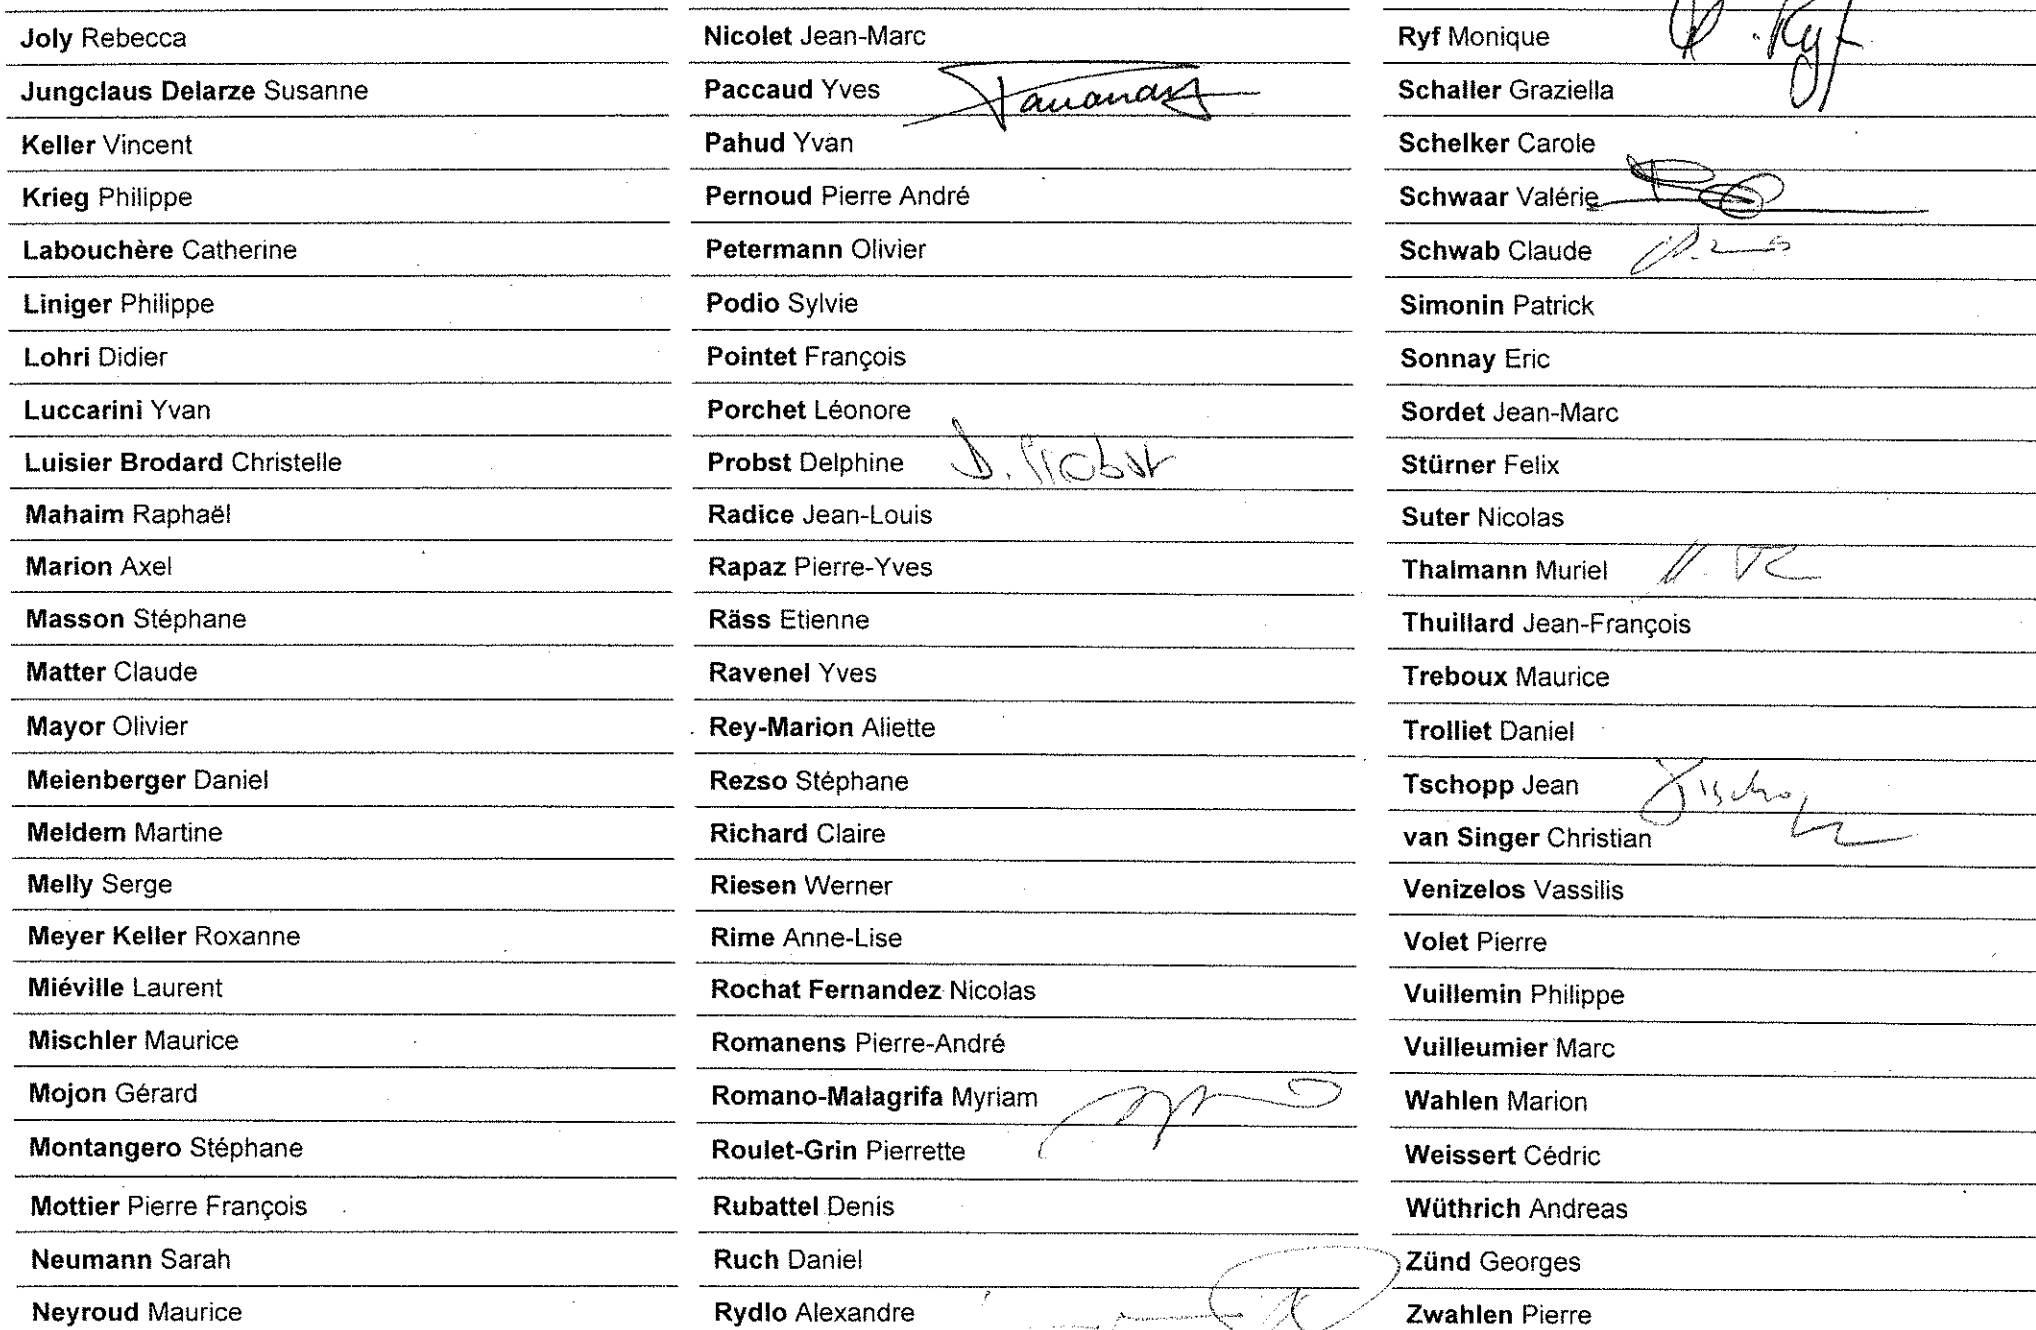 Joly Rebecca
Jungclaus Delarze Susanne
Keller Vincent
Krieg Philippe
Labouchère Catherine
Liniger Philippe
Lohri Didier
Luccarini Yvan
Luisier Brodard Christelle
Mahaim Raphaël
Marion Axel
Masson Stéphane
Matter Claude
Mayor Olivier
Meienberger Daniel
Meldem Martine
Melly Serge
Meyer Keller Roxanne
Miéville Laurent
Mischler Maurice
Mojon Gérard
Montangero Stéphane
Mottier Pierre François
Neumann Sarah
Neyroud Maurice
Nicolet Jean-Marc
Paccaud Yves
Pahud Yvan
Pernoud Pierre André
Petermann Olivier
Podio Sylvie
Pointet François
Porchet Léonore
Probst Delphine D. Probst
Radice Jean-Louis
Rapaz Pierre-Yves
Räss Etienne
Ravenel Yves
Rey-Marion Aliette
Rezso Stéphane
Richard Claire
Riesen Werner
Rime Anne-Lise
Rochat Fernandez Nicolas
Romanens Pierre-André
Romano-Malagrifa Myriam
Roulet-Grin Pierrette
Rubattel Denis
Ruch Daniel
Rydlo Alexandre
Ryf Monique Ryf
Schaller Graziella
Schelker Carole
Schwaar Valérie
Schwab Claude
Simonin Patrick
Sonnay Eric
Sordet Jean-Marc
Stürner Felix
Suter Nicolas
Thalmann Muriel
Thuillard Jean-François
Treboux Maurice
Trolliet Daniel
Tschopp Jean
van Singer Christian
Venizelos Vassilis
Volet Pierre
Vuillemin Philippe
Vuilleumier Marc
Wahlen Marion
Weissert Cédric
Wüthrich Andreas
Zünd Georges
Zwahlen Pierre